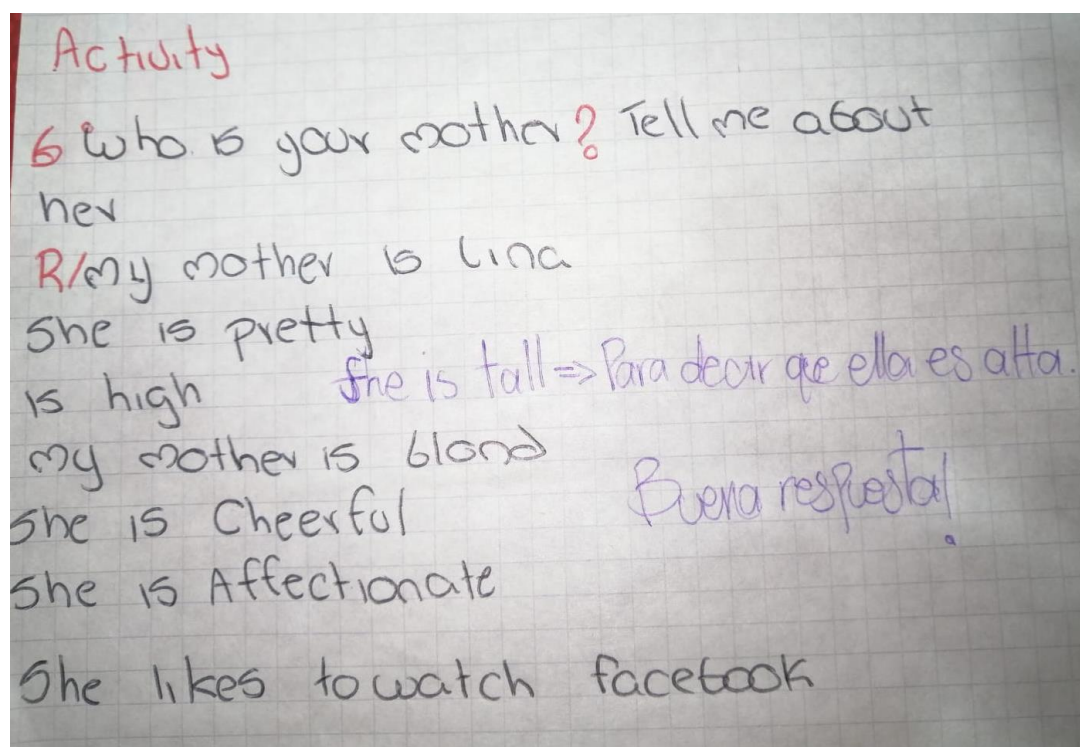 Activity
6 Who is your mother? Tell me about
her
R/my mother is Lina
She is pretty
is high
She is tall => Para decir que ella es alta.
my mother is blond
She is Cheerful
Buena respuesta!
She is Affectionate
She likes to watch facebook